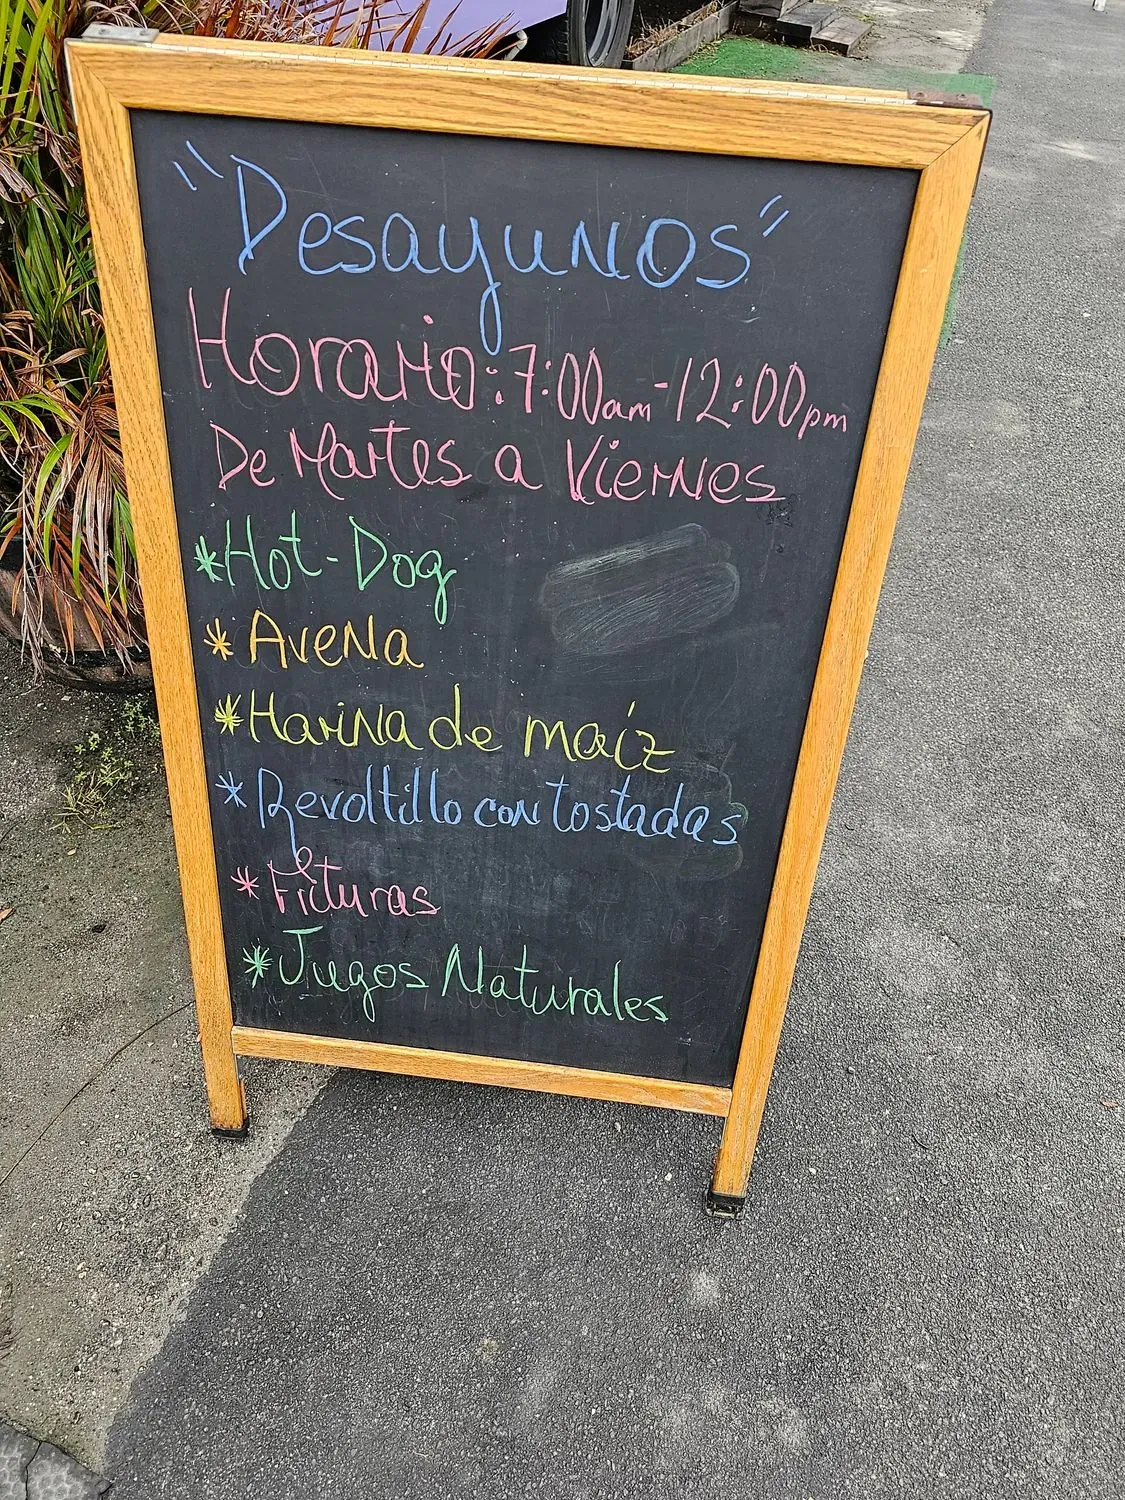 "Desayunos"
Horario: 7:00am - 12:00pm
De Martes a Viernes
*Hot-Dog
*Avena
*Harina de maíz
*Revoltillo con tostadas
*Frituras
*Jugos Naturales